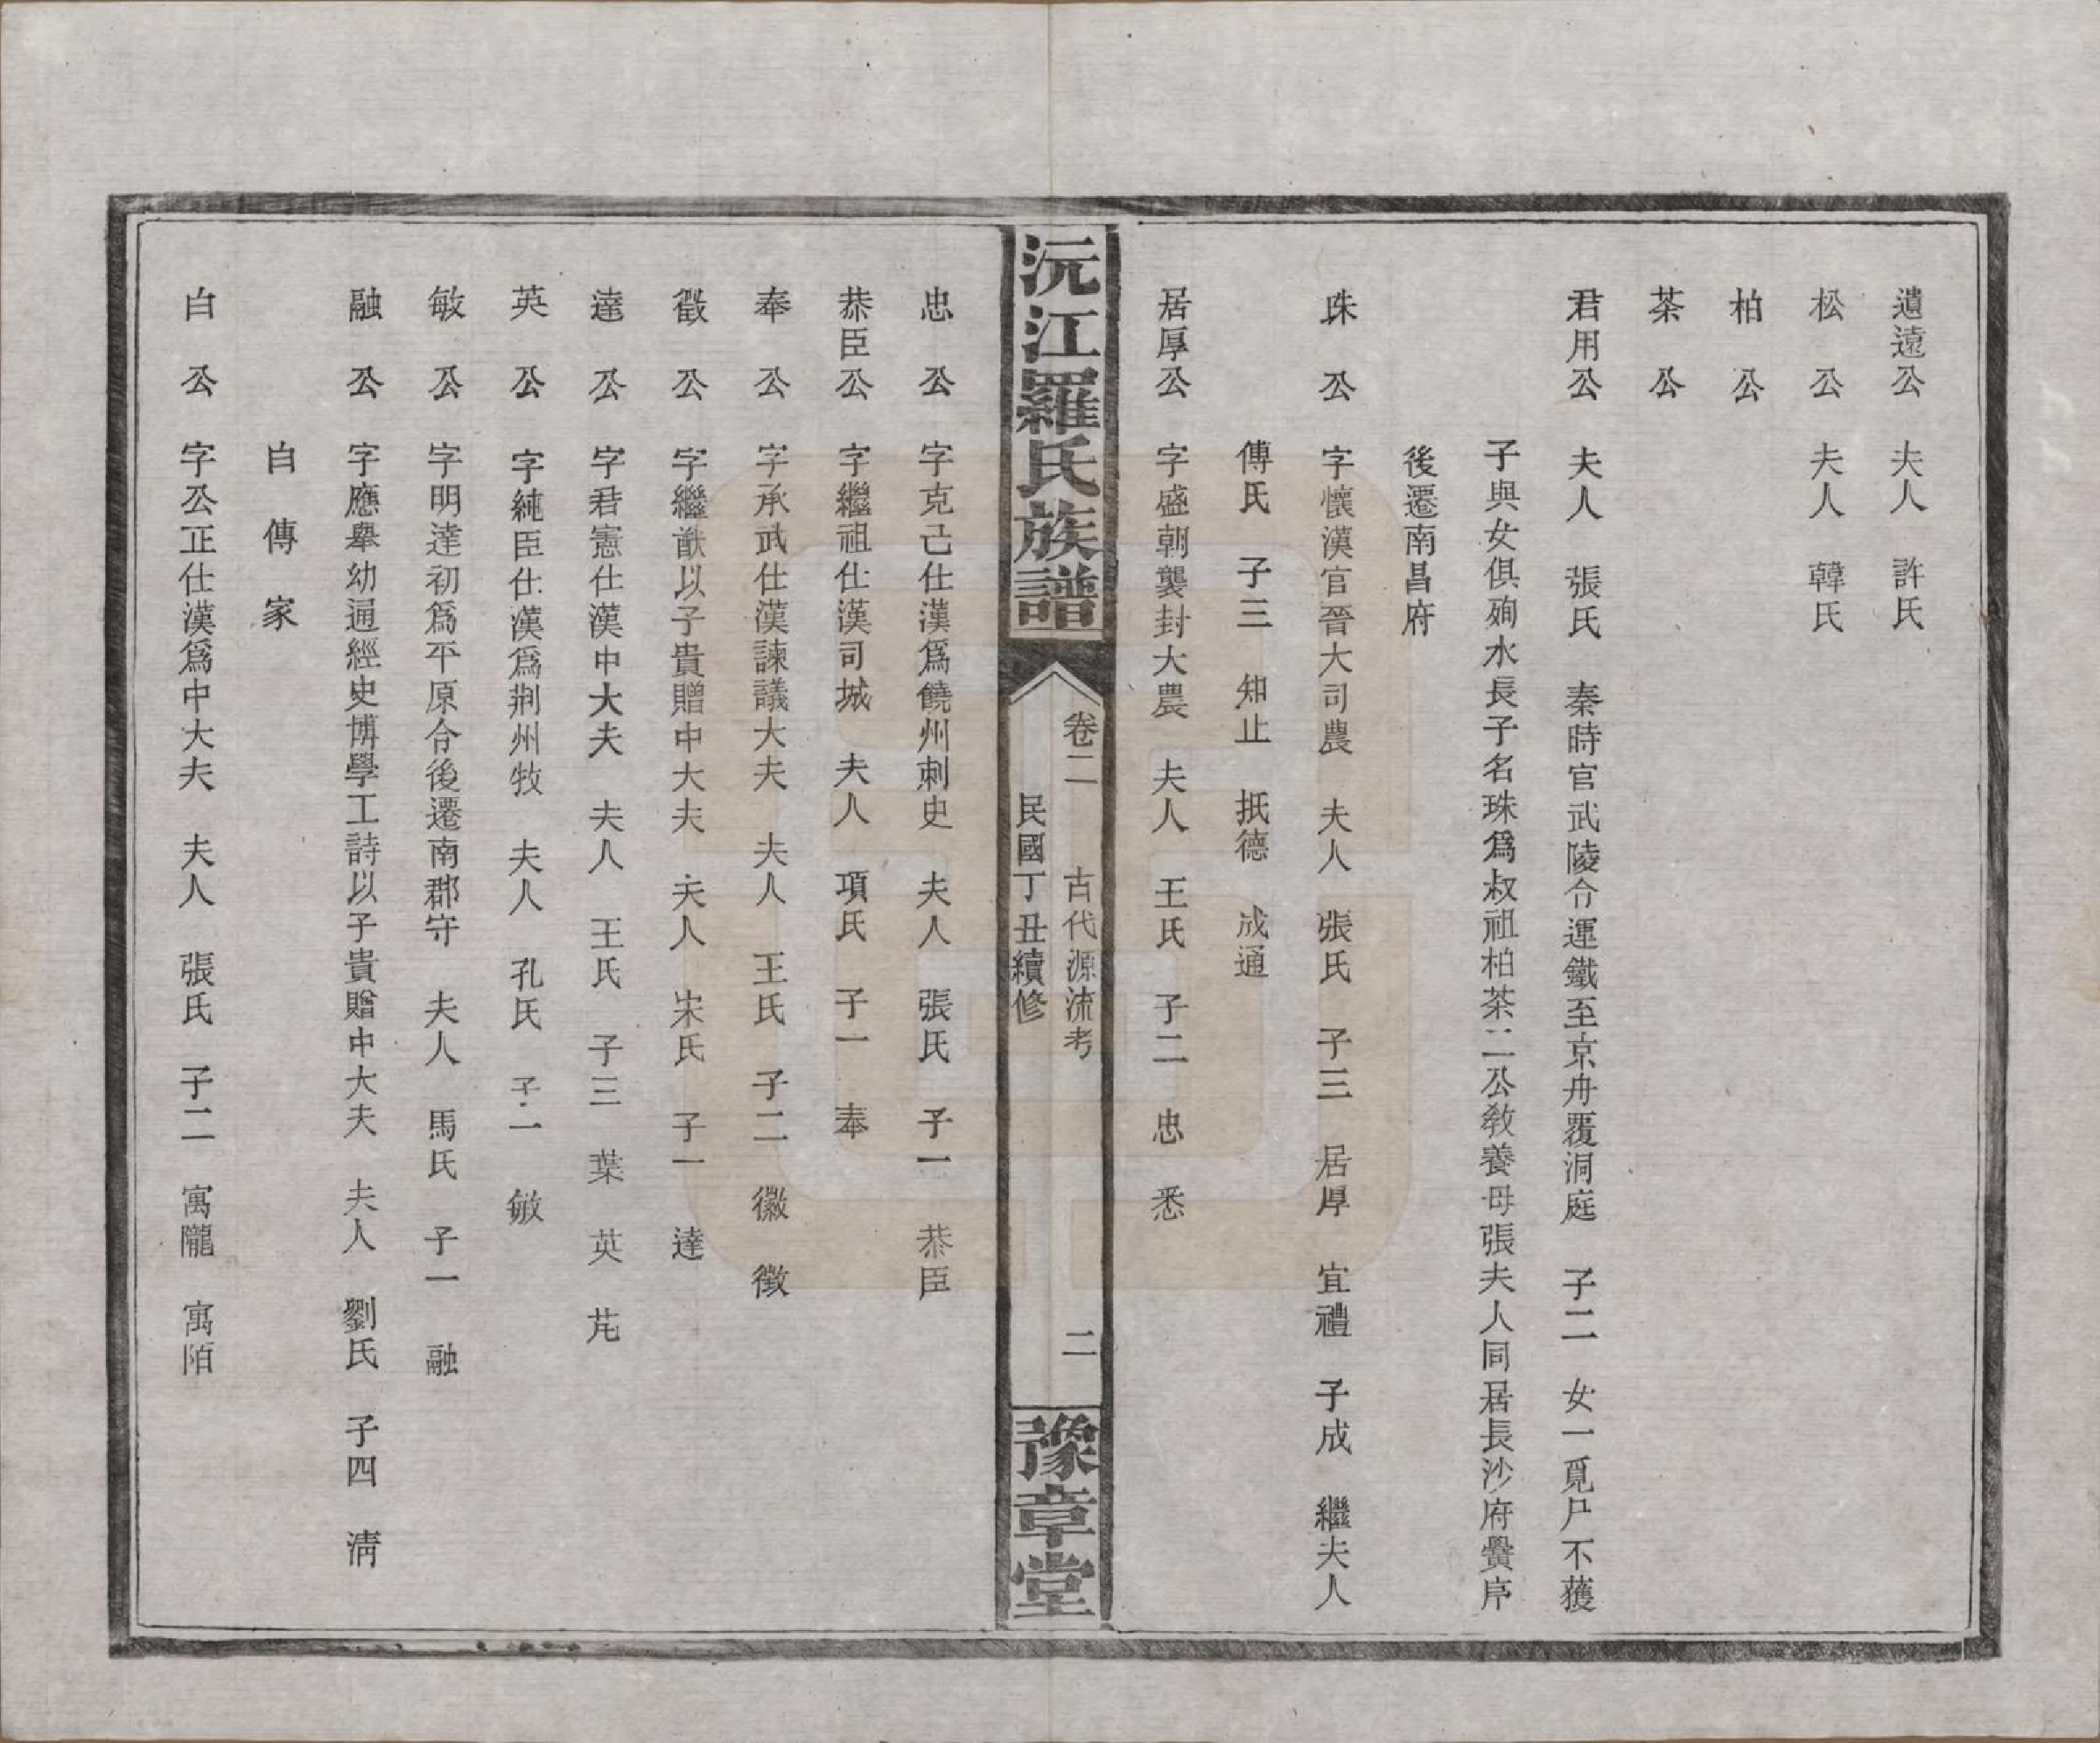 遺遠公　夫人　許氏
松　公　夫人　韓氏
柏　公
茶　公
君用公　夫人　張氏　秦時官武陵令運鐵至京舟覆洞庭　子二　女一覓尸不獲
子與女俱殉水長子名珠爲叔祖柏茶二公教養母張夫人同居長沙府黌序
後遷南昌府
珠　公　字懷漢官晉大司農　夫人　張氏　子三　居厚　宜禮　子成　繼夫人
傅氏　子三　知止　扺德　成通
居厚公　字盛朝襲封大農　夫人　王氏　子二　忠　悉
沅江羅氏族譜　卷二　古代源流考　二
民國丁丑續修　豫章堂
忠　公　字克己仕漢爲饒州刺史　夫人　張氏　子一　恭臣
恭臣公　字繼祖仕漢司城　夫人　項氏　子一　奉
奉　公　字承武仕漢諫議大夫　夫人　王氏　子二　徽　徵
徵　公　字繼猷以子貴贈中大夫　夫人　宋氏　子一　達
達　公　字君憲仕漢中大夫　夫人　王氏　子三　葉　英　芘
英　公　字純臣仕漢爲荆州牧　夫人　孔氏　子一　敏
敏　公　字明達初爲平原令後遷南郡守　夫人　馬氏　子一　融
融　公　字應舉幼通經史博學工詩以子貴贈中大夫　夫人　劉氏　子四　淸
白　傳　家
白　公　字公正仕漢爲中大夫　夫人　張氏　子二　寓隴　寓陌